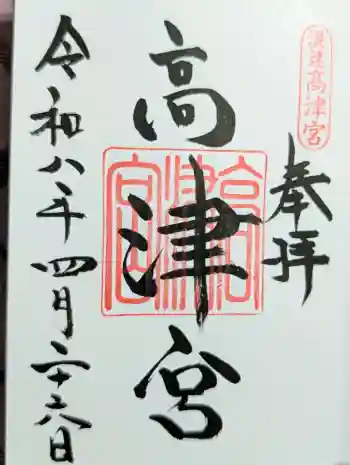 浪速高津宮
奉拝
高津宮
令和八年四月二十六日